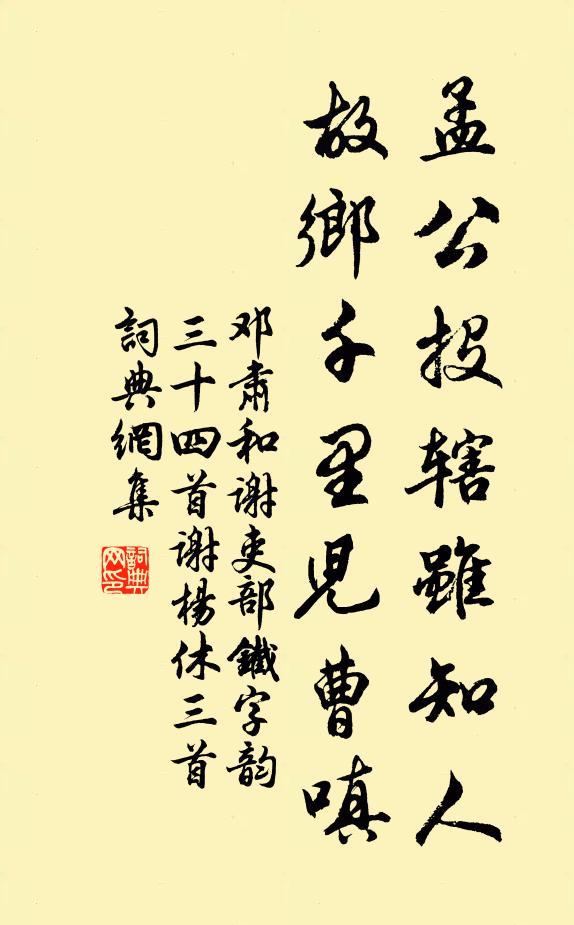 孟公投辖雖知人
故鄉千里児曹嗔
邓肃和谢吏部鐵字韵
三十四首谢楊休三首
詞典網集
詞典网印